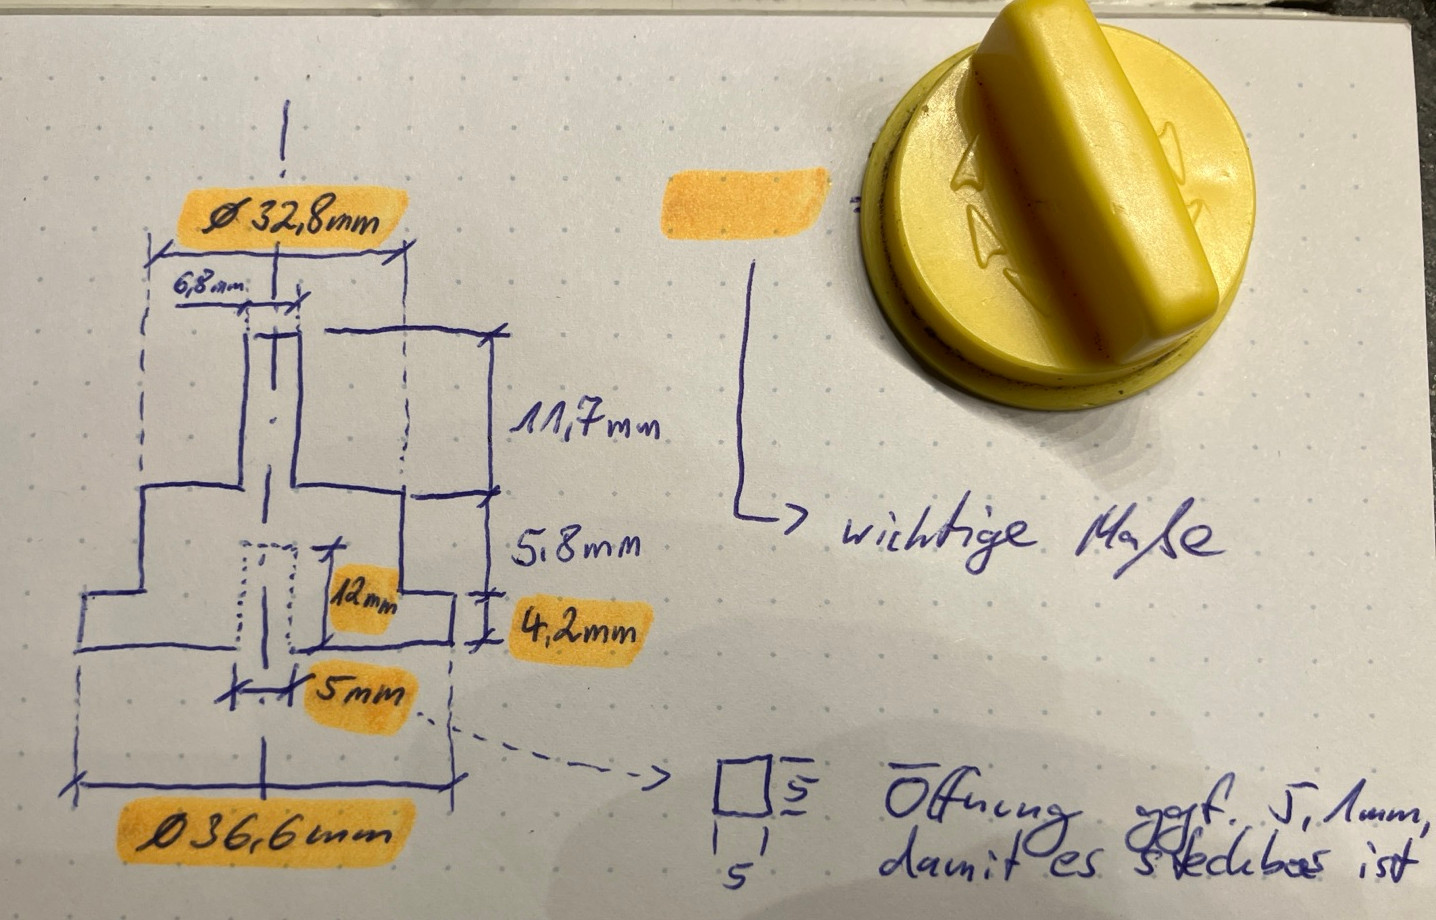 Ø 32,8mm
6,8mm
11,7mm
5,8mm
12mm
4,2mm
5mm
Ø 36,6mm
wichtige Maße
5
5
Öffnung ggf. 5,1mm,
damit es steckbar ist